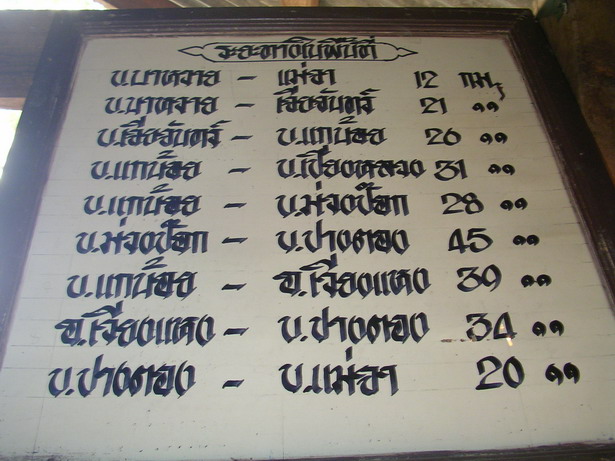 ระยะทางในพื้นที่
บ.นาหวาย - แม่จา 12 กม.
บ.นาหวาย - เจียจันทร์ 21 ๑๑
บ.เจียจันทร์ - บ.แกน้อย 26 ๑๑
บ.แกน้อย - บ.เปียงหลวง 31 ๑๑
บ.แกน้อย - บ.ม่วงป๊อก 28 ๑๑
บ.ม่วงป๊อก - บ.ปางตอง 45 ๑๑
บ.แกน้อย - อ.เวียงแหง 39 ๑๑
อ.เวียงแหง - บ.ปางตอง 34 ๑๑
บ.ปางตอง - บ.แม่จา 20 ๑๑